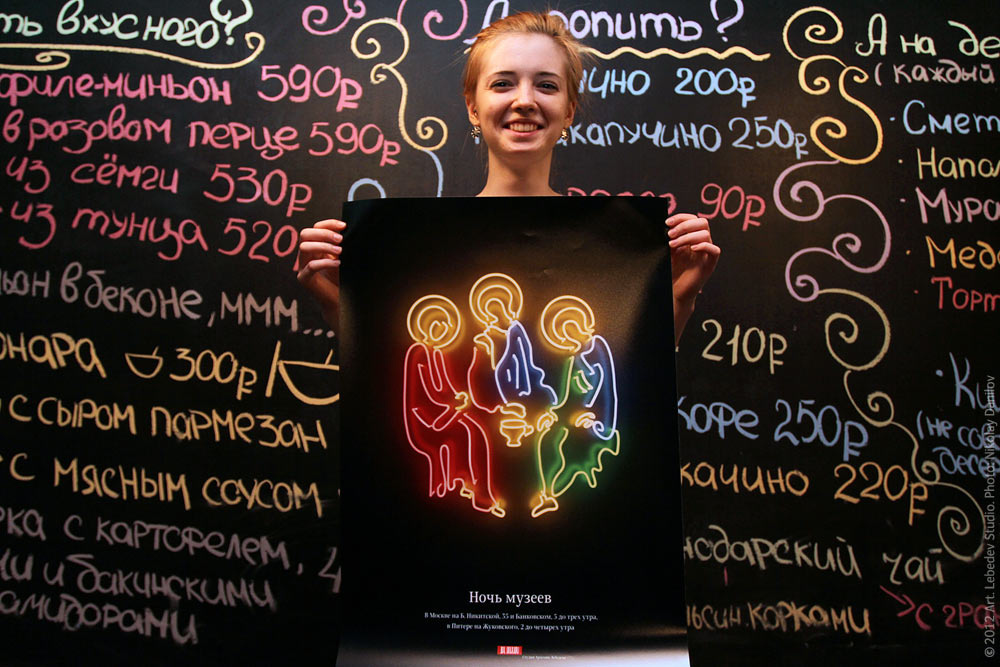 ть вкусного?
филе-миньон 590р
в розовом перце 590р
из сёмги 530р
из тунца 520
в беконе, ммм...
300р
с сыром пармезан
с мясным соусом
с картофелем,
и бакинскими
попить?
200р
капучино 250р
90р
210р
кофе 250р
220р
чай
корками
А на де
(каждый
· Смет
· Напол
Мура
· Медо
Торт
· Ки
(не сов
десе
с гро
Ночь музеев
В Москве на Б. Никитской, 35 и Банковском, 3 до трех утра,
в Питере на Жуковского, 2 до четырех утра
© 2012 Art. Lebedev Studio. Photo: Nikolay Danilov